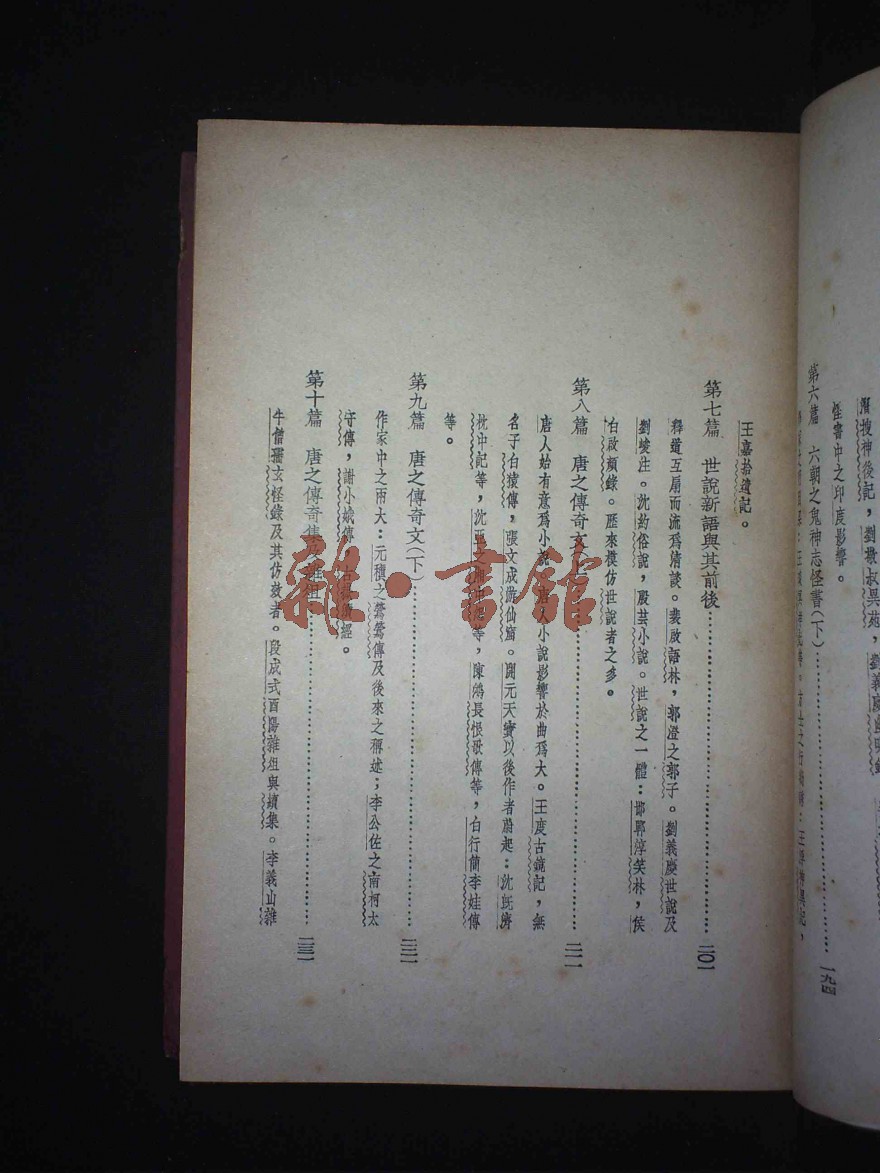 潛搜神後記，劉敬叔異苑，劉義慶幽明錄
怪書中之印度影響。
第六篇 六朝之鬼神志怪書(下)……一九四
王嘉拾遺記。
第七篇 世說新語與其前後……二〇一
釋道互扇而流爲清談。裴啟語林，郭澄之郭子。劉義慶世說及
劉峻注。沈約俗說，殷芸小說。世說之一體：邯鄲淳笑林，侯
白啟顏錄。歷來模仿世說者之多。
第八篇 唐之傳奇文(上)……二一一
唐人始有意爲小說，唐人小說影響於曲爲大。王度古鏡記，無
名子白猿傳，張文成游仙窟。開元天寶以後作者蔚起：沈既濟
枕中記等，沈亞之湘中怨等，陳鴻長恨歌傳等，白行簡李娃傳
等。
第九篇 唐之傳奇文(下)……二二一
作家中之兩大：元稹之鶯鶯傳及後來之稱述；李公佐之南柯太
守傳，謝小娥傳，古嶽瀆經。
第十篇 唐之傳奇集及雜俎……二三一
牛僧孺玄怪錄及其仿效者。段成式酉陽雜俎與續集。李義山雜
雜·書館